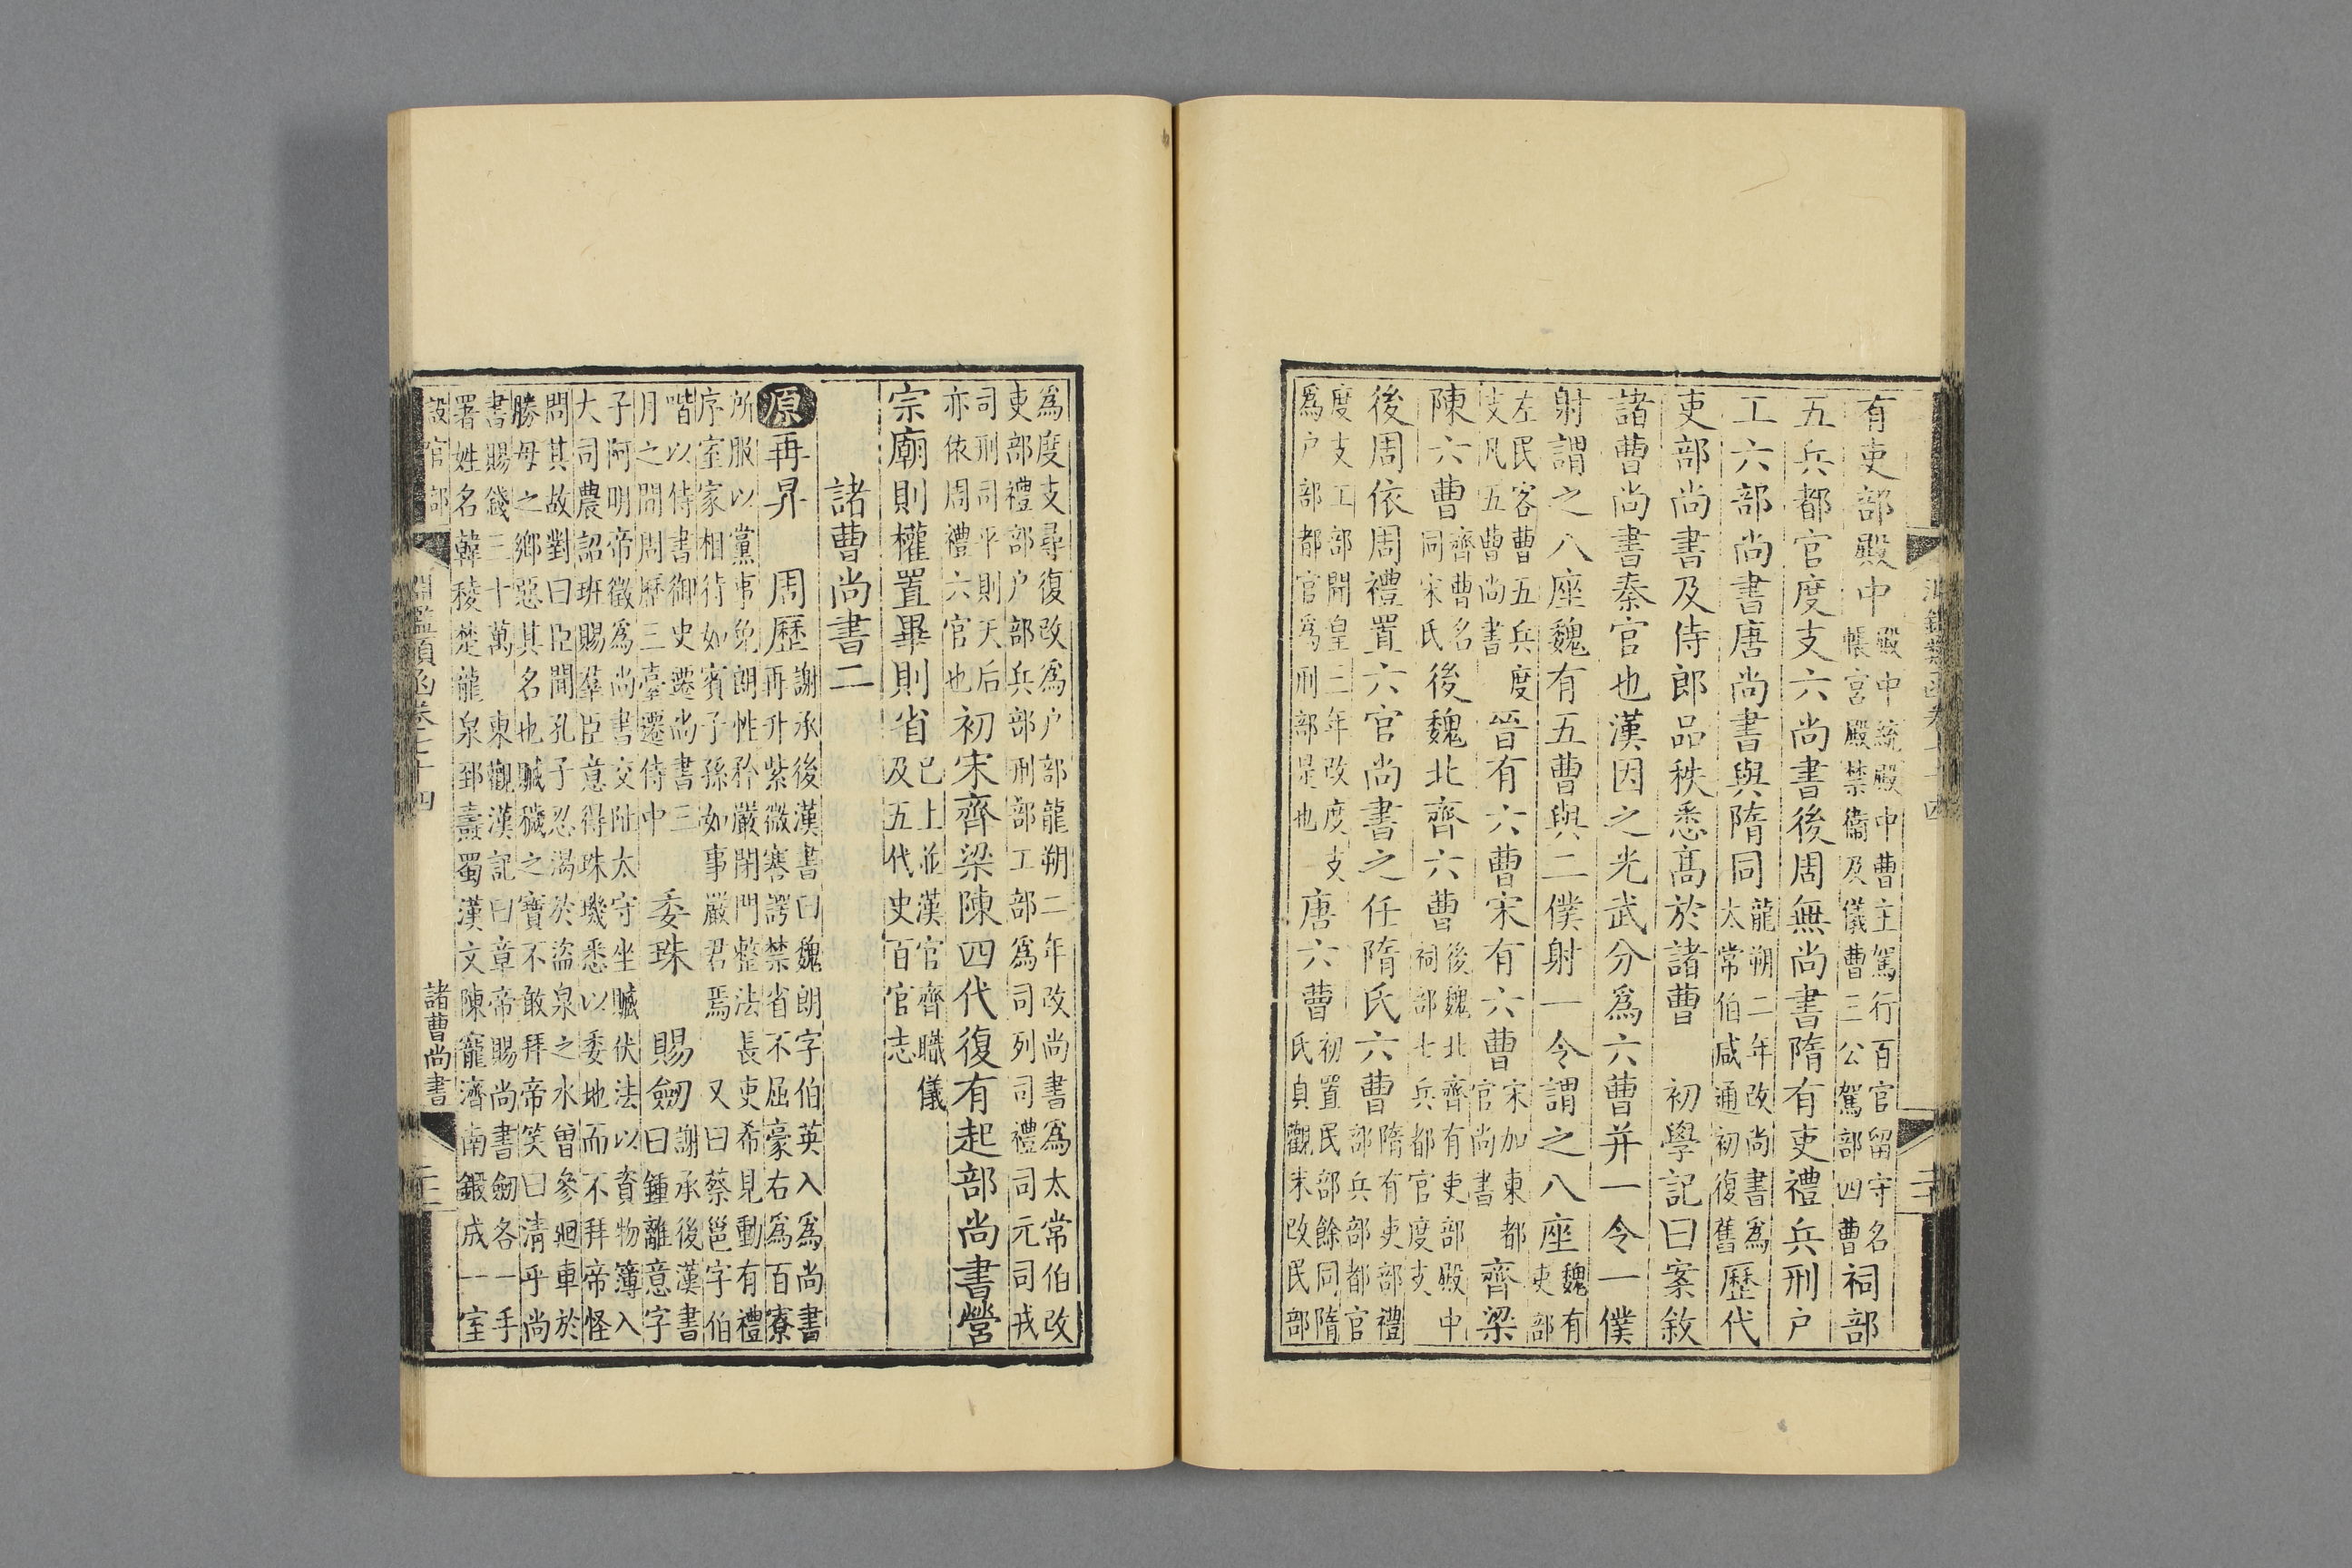 有吏部殿中殿中統殿中曹主駕行百官留守名帳宮殿禁衞及儀曹三公駕部四曹祠部
五兵都官度支六尚書後周無尚書隋有吏禮兵刑户
工六部尚書唐尚書與隋同龍朔二年改尚書爲太常伯咸通初復舊歷代
吏部尚書及侍郎品秩悉高於諸曹　初學記曰案敘
諸曹尚書秦官也漢因之光武分爲六曹并一令一僕
射謂之八座魏有五曹與二僕射一令謂之八座魏有吏部
左民客曹五兵度支凡五曹尚書晉有六曹宋有六曹宋加東都官尚書齊梁
陳六曹齊曹名同宋氏後魏北齊六曹後魏北齊有吏部殿中祠部七兵都官度支
後周依周禮置六官尚書之任隋氏六曹隋有吏部禮部兵部都官
度支工部開皇三年改度支爲户部都官爲刑部是也唐六曹初置民部餘同隋氏貞觀末改民部
爲度支尋復改爲户部龍朔二年改尚書爲太常伯改吏部禮部户部兵部刑部工部爲司列司禮司元司戎
司刑司平則天后亦依周禮六官也初宋齊梁陳四代復有起部尚書營
宗廟則權置畢則省已上並漢官齊職儀及五代史百官志
諸曹尚書二
原再昇　周歷謝承後漢書曰魏朗字伯英入爲尚書再升紫微謇諤禁省不屈豪右爲百寮
所服以黨事免朗性矜嚴閉門整法長吏希見動有禮序室家相待如賓子孫如事嚴君焉　又曰蔡邕字伯
喈以侍書御史遷尚書三月之間周歷三臺遷侍中　委珠　賜劒謝承後漢書曰鍾離意字
子阿明帝徵爲尚書交阯太守坐贓伏法以資物簿入大司農詔班賜羣臣意得珠璣悉以委地而不拜帝怪
問其故對曰臣聞孔子忍渴於盜泉之水曾參廻車於勝母之鄉惡其名也贓穢之寶不敢拜帝笑曰清乎尚
書賜錢三十萬　東觀漢記曰章帝賜尚書劒各一手署姓名韓稜楚龍泉郅壽蜀漢文陳寵濟南鍛成一室
設官部
淵鑑類函卷七十四
諸曹尚書